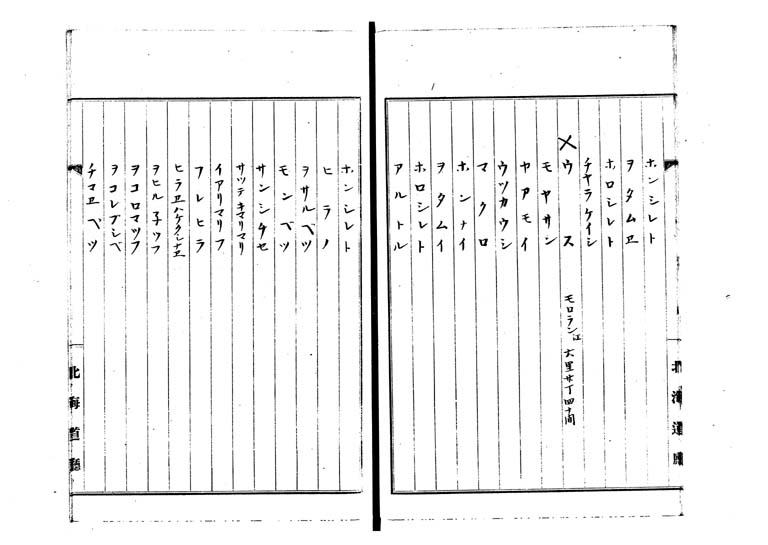 ホンシレト
ヲタムヱ
ホロシレト
チヤラケイシ
×ウス モロラン江 六里廿丁四十間
モヤサン
ヤアモイ
ウツカウシ
マクロ
ホンナイ
ヲタムイ
ホロシレト
アルトル
北海道廳
ホンシレト
ヒラノ
ヲサルベツ
モンベツ
サンシチセ
サツテキマリマリ
イアリマリフ
フレヒラ
ヲヒル子ツフ
ヲコロマツフ
ヲコレブンベ
チマヱベツ
北海道廳